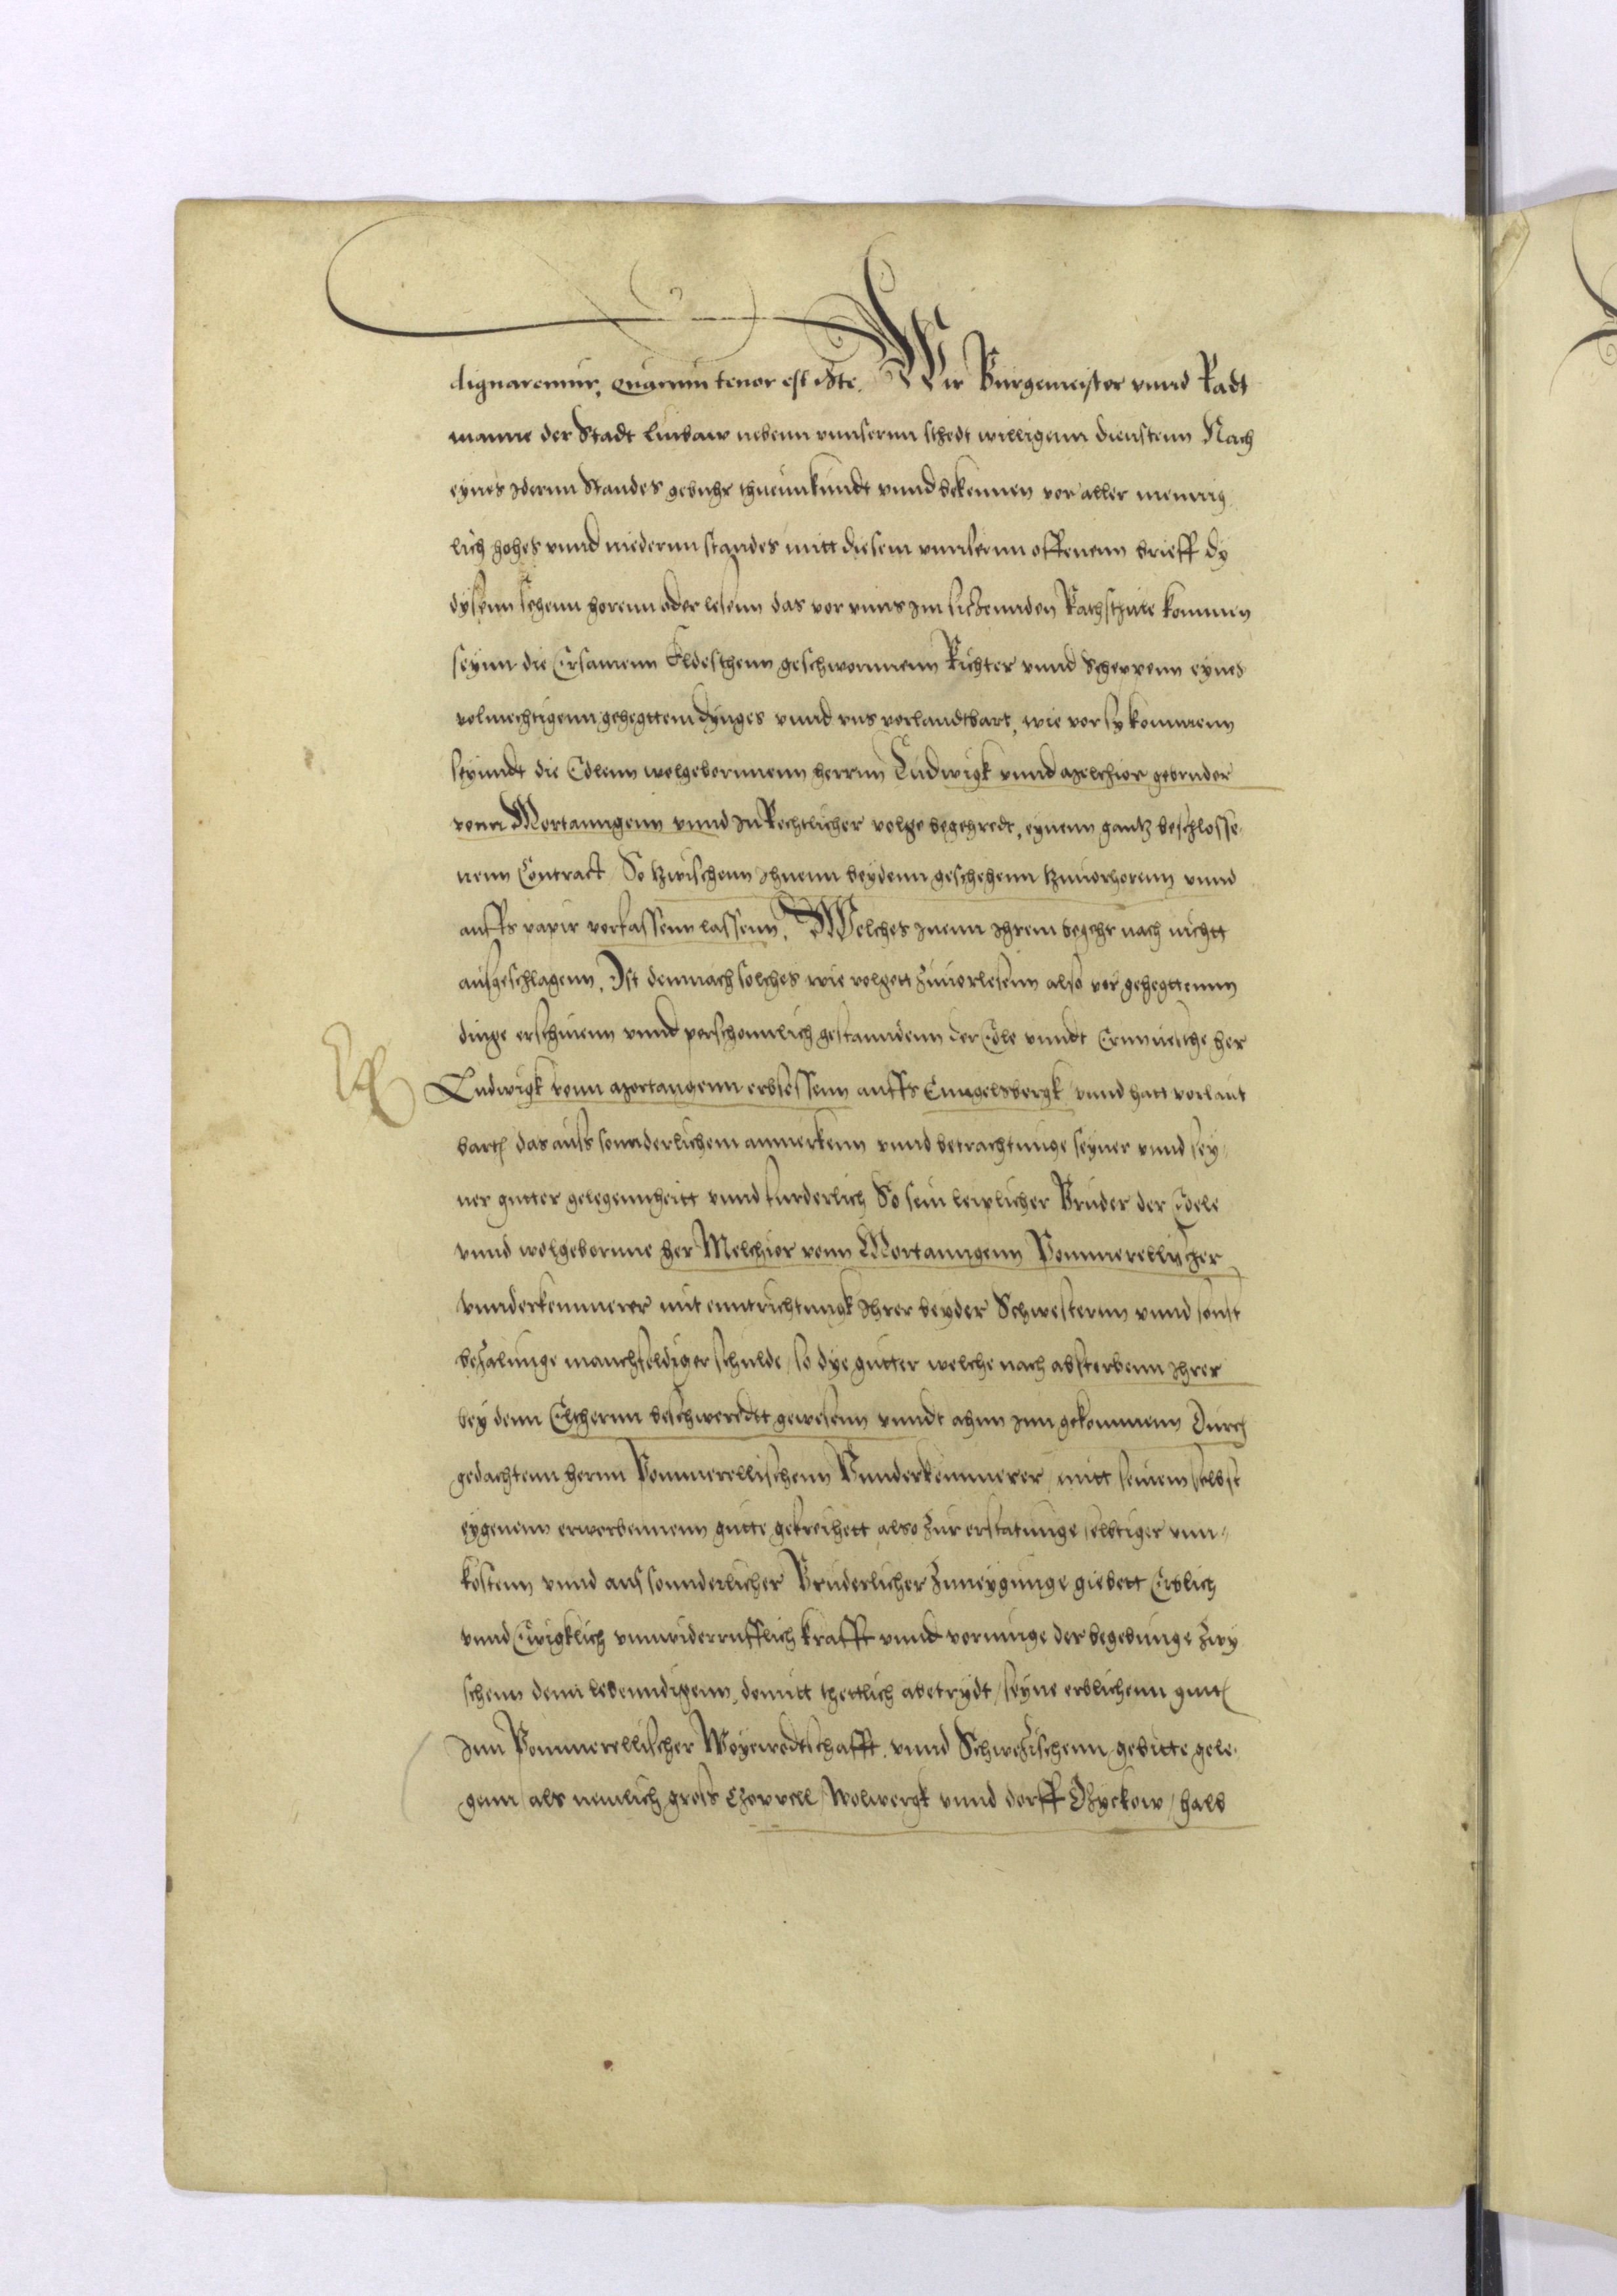 dignaremur, quarum tenor est iste. Wir Burgemeister vnnd Radt
manne der Stadt Liubaw nebenn vnnsernn stedt willigenn dienstenn Nach
eynes Idernn Standes gebuhr thuenn kundt vnnd bekennen vor aller mennig
lich hohes vnnd niedernn standes mitt diesem vnnsernn offenenn brieff dy
dysenn sehenn horenn oder lesenn das vor vnns Im sitzennden Rathstule kommen
seynn die Ersamenn Eldesthenn geschwornnenn Richter vnnd Scheppenn eynes
volmechtigenn gehegttem dynges vnnd vns vorlandtbart, wie vor sy kommenn
seynndt die Edlenn wolgebornnenn herrnn Ludwigk vnnd Melchior gebruder
vonn Mortanngenn vnnd In Rechtlicher volge begehredt, eynenn gantz beschlosse
nenn Contract So tzwischenn Ihnenn beydenn geschehenn tzuuorhorenn vnnd
auffs papir vorfassenn lassenn. Welches Inenn Ihrem begehr nach nichtt
ausgeschlagenn, Ist demnach solches wie volgett zuuorlesenn also vor gehegttennn
dinge erschinenn vnnd perschonnlich gestanndenn der Edle vnndt Ernnuesthe her
Ludwigk vonn Mortangenn erbsessenn auffs Enngelsbergk vnnd hatt vorlaut
bart das aus sonnderlichem anmerkenn vnnd betrachtunge seyner vnnd sey
ner gutter gelegennheitt vnnd furderlich So sein leiplicher Bruder der Edele
vnnd wolgebornne her Melchior vonn Mortanngenn Pommerellischer
vnnderkemmerer mit enntrichtungk Ihrer beyder Schwesternn vnnd sonst
bezalunge manchfeldiger schulde, so dye gutter welche nach absterbenn Ihrer
bey denn Elthernn beschweredtt gewesenn vnndt ahnn Inn gekommenn Durch
gedachtenn hernn Pommerellischenn Vnnderkemmerer, mitt seinem selbst
eygenenn erworbennenn gutte gefreihett also zur erstatunge selbtiger vnn
kostenn vnnd aus sonnderlicher Bruderlicher Zuneygunge giebett Erblich
vnnd Ewigklich vnnwiderrufflich krafft vnnd vornunge der begebunge zwy
schenn denn lebenndigenn, domitt thettlich abetrydt, seyne erblichenn gutt
Inn Pommerellischer Woyewodtschafft. vnnd Schwezischenn gebitte gele
genn als nemlich gross Choppell, Wolwergk vnnd dorff Dzyckow, halb